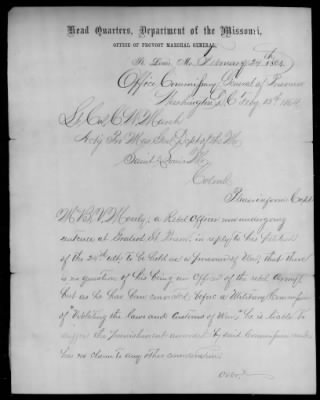 Head Quarters, Department of the Missouri,
OFFICE OF PROVOST MARSHAL GENERAL,
St. Louis, Mo., February 24th 1864
Office Commissary General of Prisoners
Washington D.C. Feby 13th 1864
Lt. Col. C. W. Marsh
Actg Pro Mar Genl Dept of the Mo
Saint Louis Mo.
Colonel
Please inform Capt
M. B. V. a Rebel Officer now undergoing
sentence at Gratiot St Prison, in reply to his petition
of the 24th ulto to be held as a Prisoner of War, that there
is no question of his being an Officer of the rebel army
but as he has been convicted, before a Military Commission
of "Violating the laws and Customs of War," he is liable to
suffer the punishment awarded by said Commission and
has no claim to any other consideration.
over